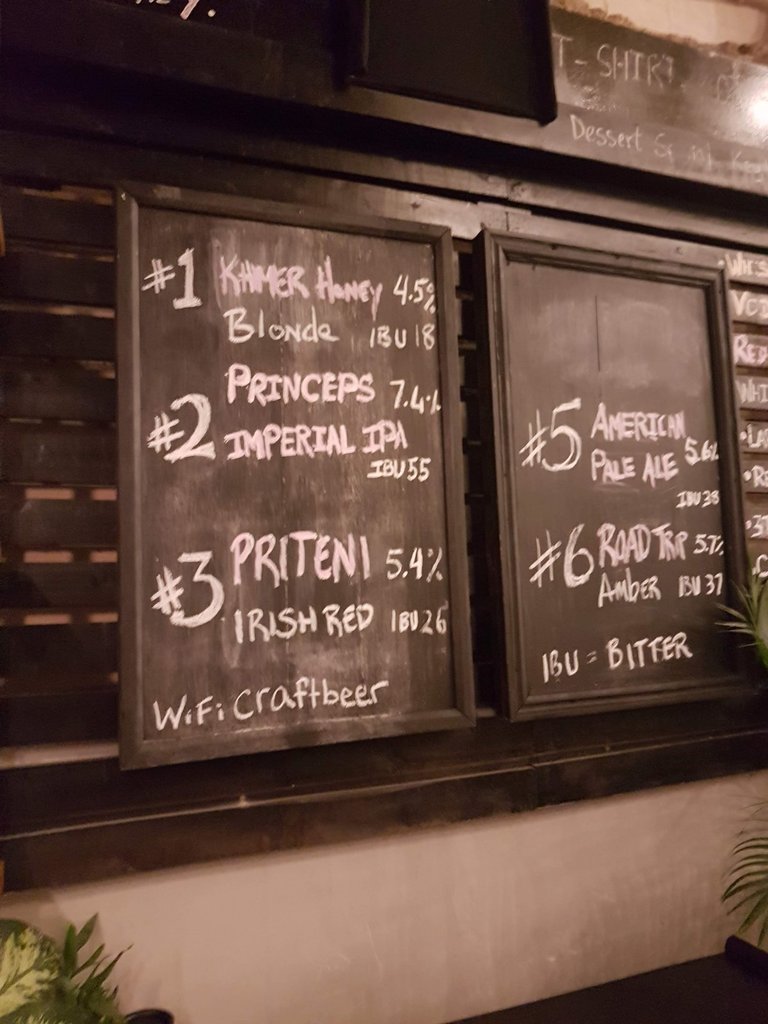 T-SHIRT
Dessert
#1 KHMER HONEY 4.5%
Blonde IBU 18
#2 PRINCEPS 7.4%
IMPERIAL IPA
IBU 55
#3 PRITENI 5.4%
IRISH RED IBU 26
WiFi craftbeer
#5 AMERICAN
PALE ALE 5.6%
IBU 38
#6 ROAD TRIP 5.7%
AMBER IBU 37
IBU = BITTER
RED